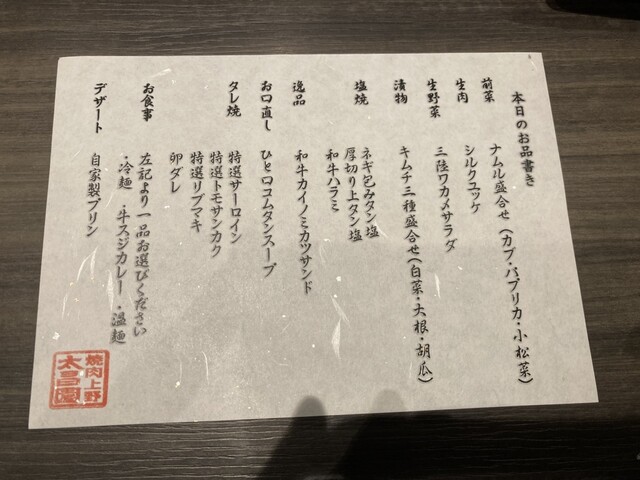 本日のお品書き
前菜 ナムル盛合せ(カブ・パプリカ・小松菜)
生肉 シルクユッケ
生野菜 三陸ワカメサラダ
漬物 キムチ三種盛合せ(白菜・大根・胡瓜)
塩焼 ネギ包みタン塩
厚切り上タン塩
和牛ハラミ
逸品 和牛カイノミカツサンド
お口直し ひと口コムタンスープ
タレ焼 特選サーロイン
特選トモサンカク
特選リブマキ
卵ダレ
お食事 左記より一品お選びください
・冷麺 ・牛スジカレー ・温麺
デザート 自家製プリン
焼肉上野
太昌園